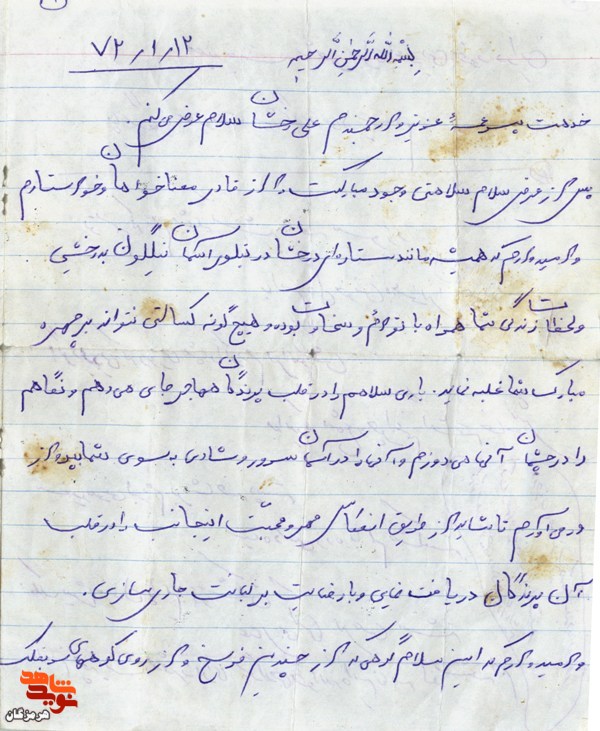 بِسْمِ اللهِ الرَّحْمٰنِ الرَّحیم
۷۲/۱/۱۲
خدمت پسر عمهٔ عزیز و ارجمندم علی رخشان سلام عرض می کنم.
پس از عرض سلام سلامتی وجود مبارکت را از قادر معنا خواهان و خواستارم
و امیدوارم که همیشه مانند ستاره ای درخشان در تبلور آسمان نیلگون بدرخشی
و لحظات زندگی شما همواه با تولاّم و سخاوت بوده و هیچ گونه کسالتی نتواند بر چهره
مبارک شما غلبه نماید. باری سلامم را در قلب پرندگان مهاجر جای می دهم و نگاهم
را در چشمان آنها می دوزم و آنها را در آسمان سرور و شادی به سوی شما به پرواز
در می آورم تا شاید از طریق انعکاس مهر و محبّت اینجانب را در قلب
آن پرندگان دریافت نمایی و با رضایت بر لبانت جاری سازی.
و امیدوارم که این سلام گرمی که از چندین فرسخ و از روی کوههای
نوید شاهد
هرمزگان